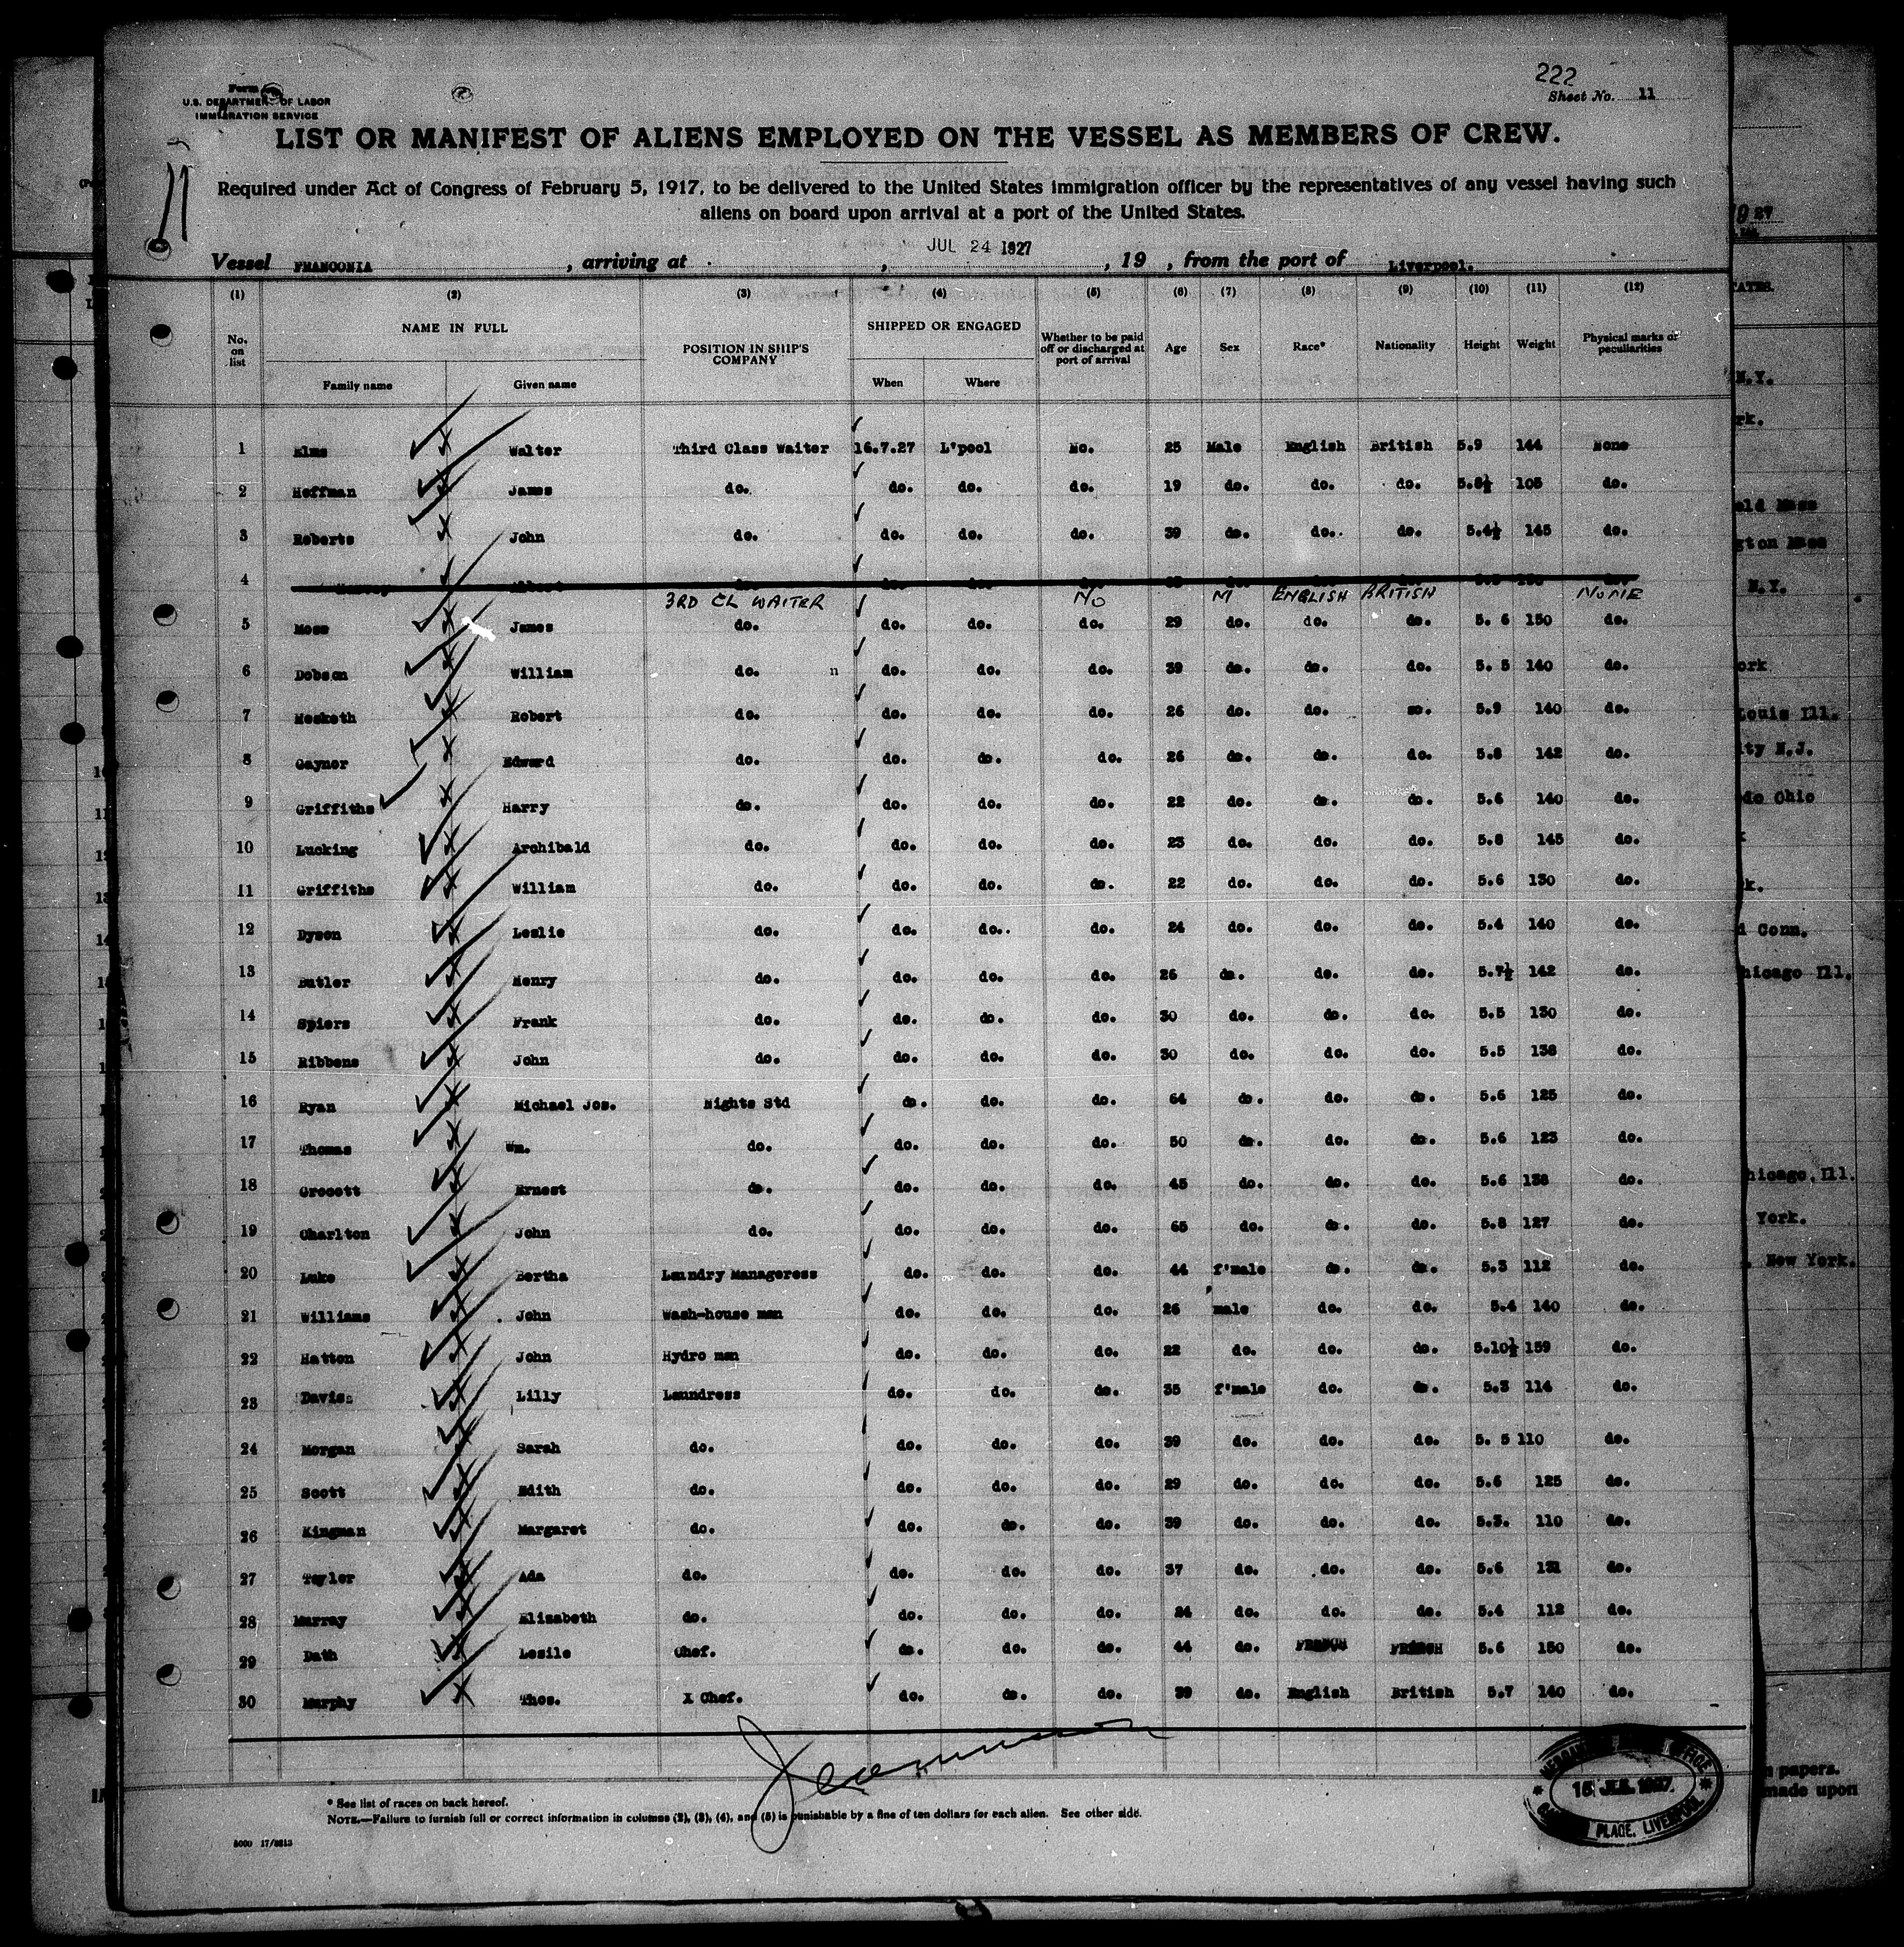 222
Sheet No. 11
Form
U.S. DEPARTMENT OF LABOR
IMMIGRATION SERVICE
LIST OR MANIFEST OF ALIENS EMPLOYED ON THE VESSEL AS MEMBERS OF CREW.
Required under Act of Congress of February 5, 1917, to be delivered to the United States immigration officer by the representatives of any vessel having such
aliens on board upon arrival at a port of the United States.
Vessel FRANCONIA, arriving at , JUL 24 1927, 19 , from the port of Liverpool.
(1) (2) (3) (4) (5) (6) (7) (8) (9) (10) (11) (12)
No. on list NAME IN FULL Family name Given name POSITION IN SHIP'S COMPANY SHIPPED OR ENGAGED When Where Whether to be paid off or discharged at port of arrival Age Sex Race* Nationality Height Weight Physical marks or peculiarities
1 Elms Walter Third Class Waiter 16.7.27 L'pool No. 25 Male English British 5.9 144 None
2 Hoffman James do. do. do. do. 19 do. do. do. 105 do.
3 Roberts John do. do. do. do. 39 do. do. do. 5.4½ 145 do.
4
3RD CL WAITER NO M ENGLISH BRITISH NONE
5 Moss James do. do. do. do. 29 do. do. do. 5. 6 150 do.
6 Dobson William do. n do. do. do. 39 do. do. do. 5. 5 140 do.
7 Hesketh Robert do. do. do. do. 26 do. do. do. 5.9 140 do.
8 Gaynor Edward do. do. do. do. 26 do. do. do. 5.8 142 do.
9 Griffiths Harry do. do. do. do. 22 do. do. do. 5.6 140 do.
10 Lucking Archibald do. do. do. do. 23 do. do. do. 5.8 145 do.
11 Griffiths William do. do. do. do. 22 do. do. do. 5.6 130 do.
12 Dyson Leslie do. do. do. do. 24 do. do. do. 5.4 140 do.
13 Butler Henry do. do. do. do. 26 do. do. do. 5.7½ 142 do.
14 Spiers Frank do. do. do. do. 30 do. do. do. 5.5 130 do.
15 Ribbens John do. do. do. do. 30 do. do. do. 5.5 138 do.
16 Ryan Michael Jos. Nights Std do. do. do. 64 do. do. do. 5.6 125 do.
17 Thomas Wm. do. do. do. do. 50 do. do. do. 5.6 123 do.
18 Grocott Ernest do. do. do. do. 45 do. do. do. 5.6 138 do.
19 Charlton John do. do. do. do. 65 do. do. do. 5.8 127 do.
20 Luke Bertha Laundry Manageress do. do. do. 44 f'male do. do. 5.3 112 do.
21 Williams John Wash-house man do. do. do. 26 male do. do. 5.4 140 do.
22 Hatton John Hydro man do. do. do. 22 do. do. do. 5.10½ 159 do.
23 Davis Lilly Laundress do. do. do. 35 f'male do. do. 5.3 114 do.
24 Morgan Sarah do. do. do. do. 39 do. do. do. 5. 5 110 do.
25 Scott Edith do. do. do. do. 29 do. do. do. 5.6 125 do.
26 Kingman Margaret do. do. do. do. 39 do. do. do. 5.3. 110 do.
27 Taylor Ada do. do. do. do. 37 do. do. do. 5.6 131 do.
28 Murray Elizabeth do. do. do. do. 24 do. do. do. 5.4 112 do.
29 Dath Lesile Chef. do. do. do. 44 do. FRENCH FRENCH 5.6 150 do.
30 Murphy Thos. X Chef. do. do. do. 39 do. English British 5.7 140 do.
* See list of races on back hereof.
NOTE.—Failure to furnish full or correct information in columns (2), (3), (4), and (5) is punishable by a fine of ten dollars for each alien. See other side.
MERCANTILE MARINE OFFICE
15 JUL 1927
PLACE, LIVERPOOL
N.Y.
N.Y.
Louis Ill.
N.J.
Ohio
Conn.
Chicago Ill.
Chicago, Ill.
York.
New York.
papers.
made upon